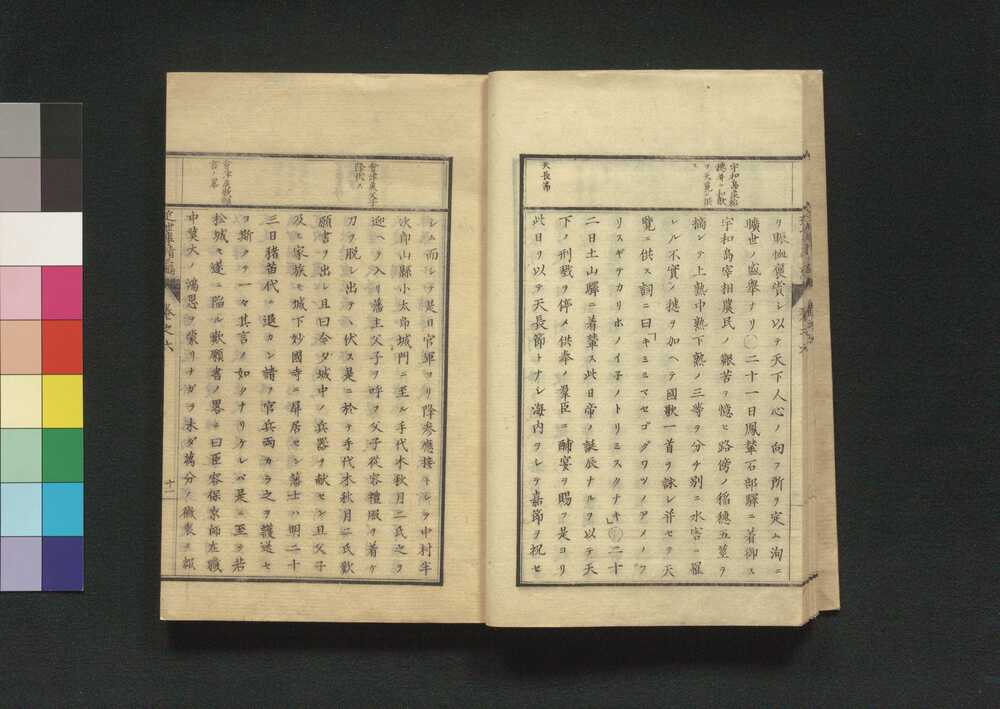 宇和島侯稲
穂并ニ和歌
ヲ天覧ニ供
ス
天長節
リ賑恤褒賞シ以テ天下人心ノ向フ所ヲ定ム洵ニ
曠世ノ盛擧ナリ○二十一日鳳輦石部驛ニ着御ス
宇和島宰相農民ノ艱苦ヲ憶ヒ路傍ノ稲穂五莖ヲ
摘ンテ上熟中熟下熟ノ三等ヲ分チ別ニ水害ニ罹
レル不實ノ穂ヲ加ヘテ國歌一首ヲ詠シ并セテ天
覧ニ供ス詞ニ曰「キミミマセゴグワツノアメノフ
リスギテカリホノイ子ノトリミスクナキ」○二十
二日土山驛ニ着輦ス此日帝ノ誕辰ナルヲ以テ天
下ノ刑戮ヲ停メ供奉ノ羣臣ニ酺宴ヲ賜フ是ヨリ
此日ヲ以テ天長節トナシ海内ヲシテ嘉節ヲ祝セ
會津侯父子
降伏ス
會津侯歎願
書ノ畧
シム而シテ是日官軍ヨリ降参應接トシテ中村半
次郎山縣小太郎城門ニ至ル手代木秋月二氏之ヲ
迎ヘテ入リ藩主父子ヲ呼フ父子從容禮服ヲ着ケ
刀ヲ脱シ出テヽ伏ス是ニ於テ手代木秋月二氏歎
願書ヲ出シ且曰今夕城中ノ兵器ヲ献セン且父子
及ヒ家族モ城下妙國寺ニ屏居セン藩士ハ明二十
三日猪苗代ニ退カン請フ官兵両カラ之ヲ護送セ
ヨ斯クテ一々其言ノ如クナリケレバ是ニ至テ若
松城モ遂ニ陥ル歎願書ノ畧ニ曰臣容保京師在職
中莫大ノ鴻恩ヲ蒙リナガラ未ダ萬分ノ微衷ヲ報
近世事情五編 巻之六 十一